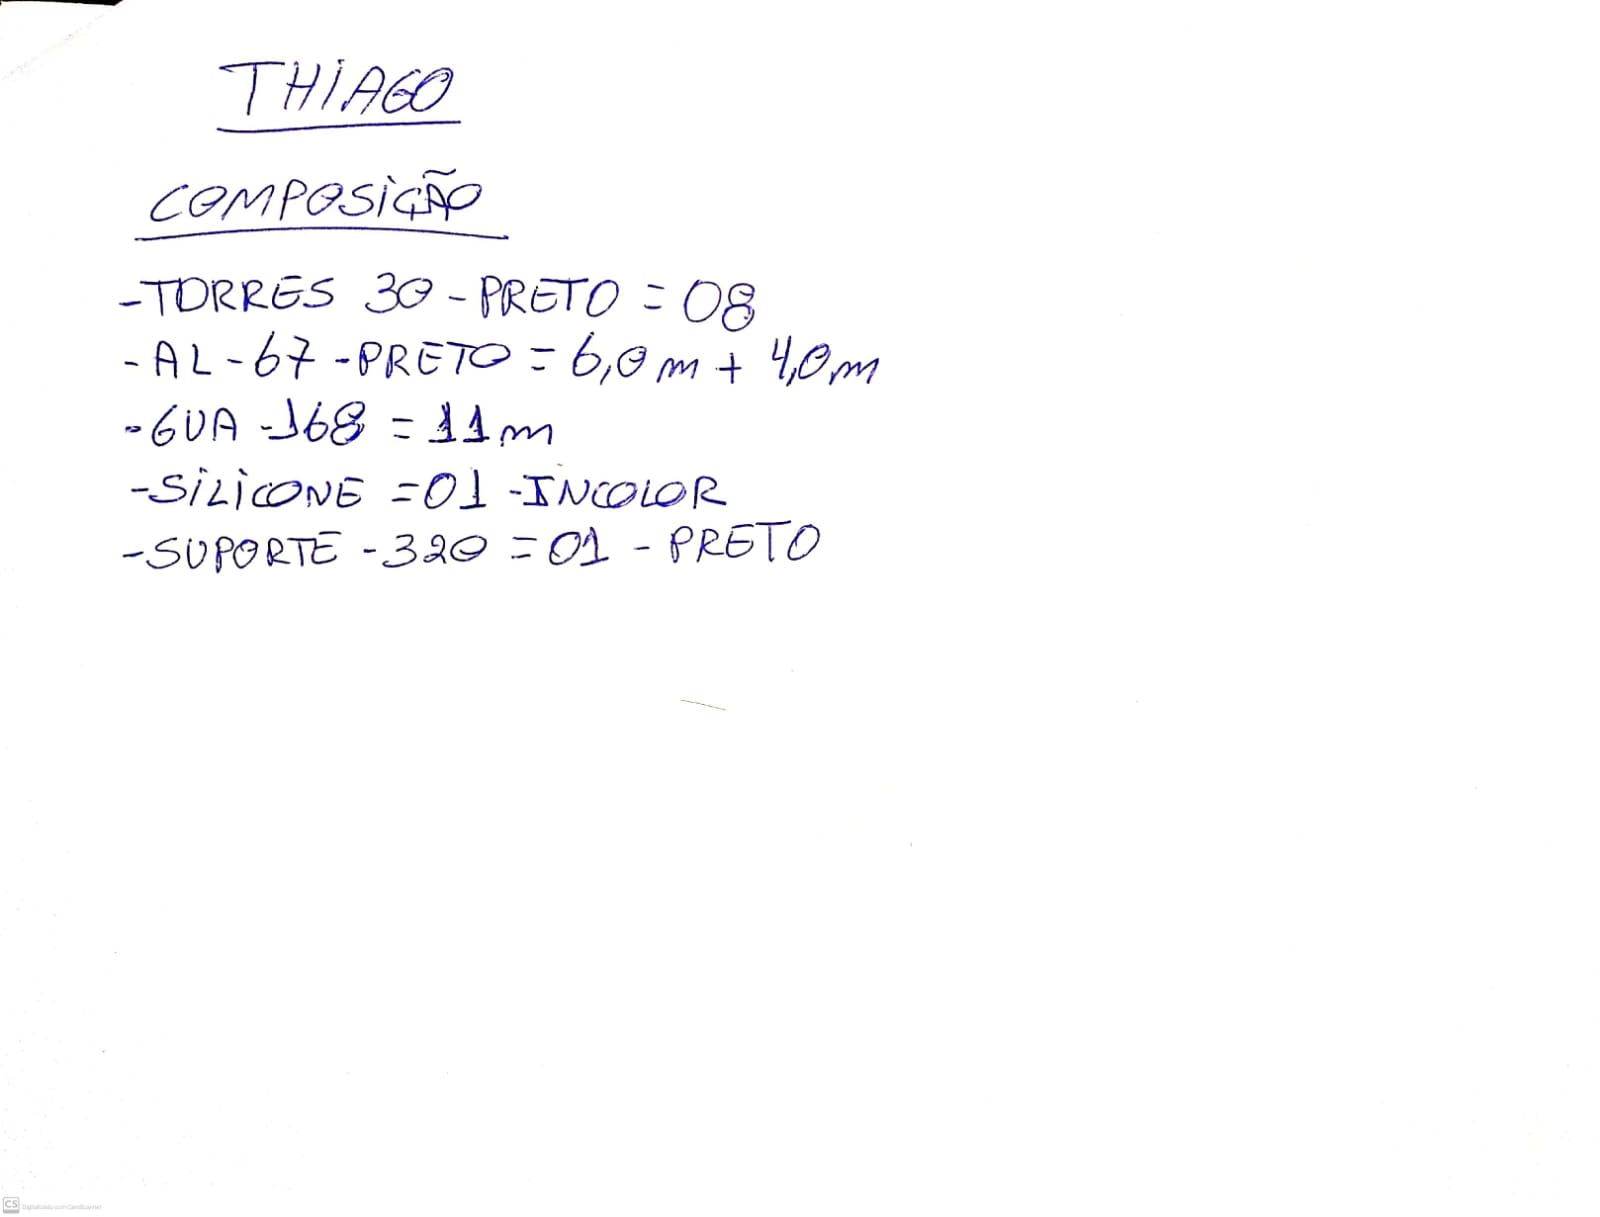 THIAGO
COMPOSIÇÃO
-TORRES 30 - PRETO = 08
- AL - 67 - PRETO = 6,0 m + 4,0 m
- GUA - 168 = 11 m
- SILICONE = 01 - INCOLOR
- SUPORTE - 320 = 01 - PRETO
CS Digitalizado com CamScanner